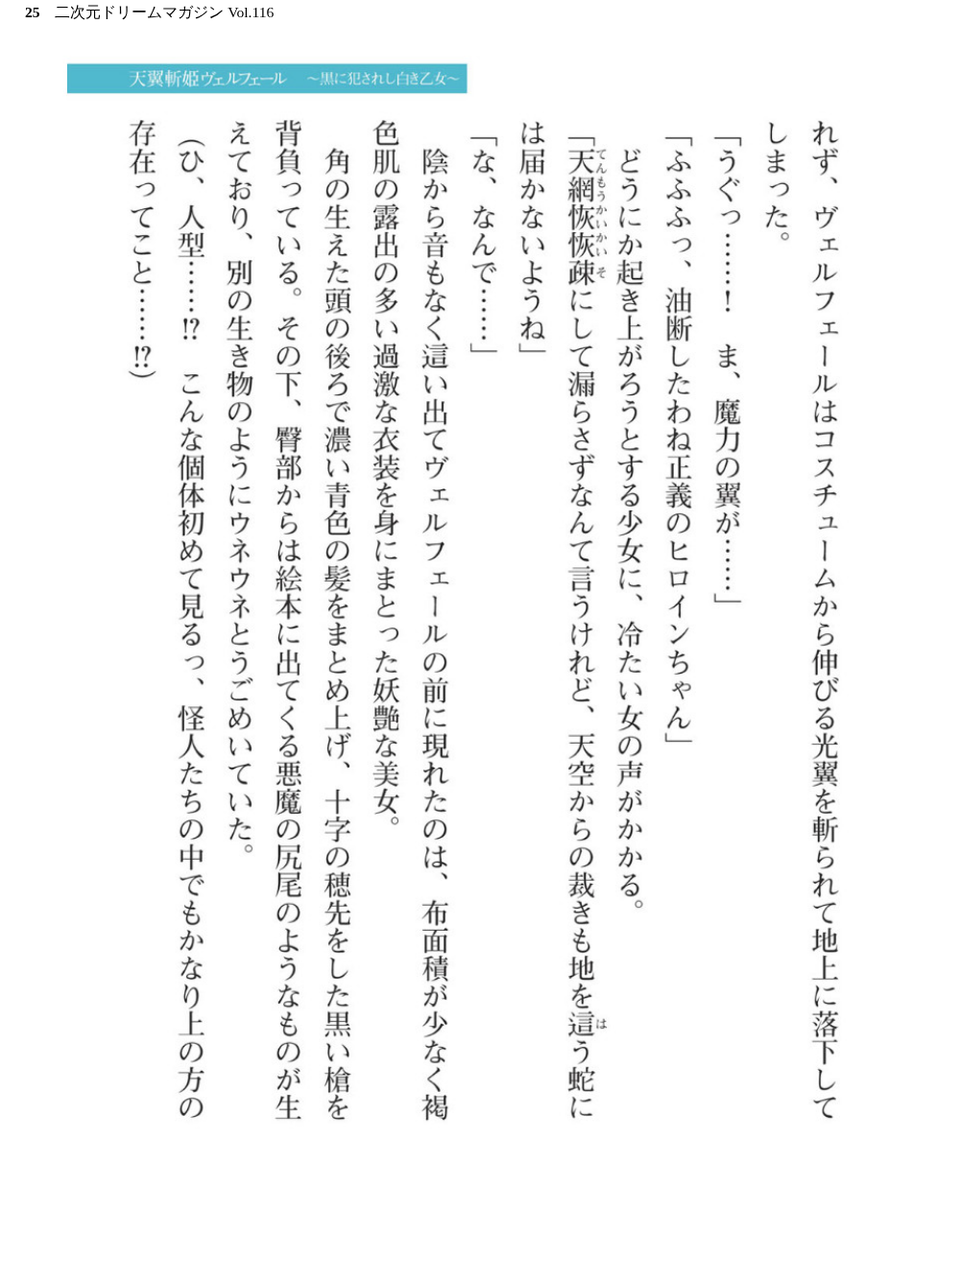 25 二次元ドリームマガジン Vol.116
天翼斬姫ヴェルフェール ～黒に犯されし白き乙女～
れず、ヴェルフェールはコスチュームから伸びる光翼を斬られて地上に落下して
しまった。
「うぐっ……！　ま、魔力の翼が……」
「ふふふっ、油断したわね正義のヒロインちゃん」
どうにか起き上がろうとする少女に、冷たい女の声がかかる。
「天網恢恢疎にして漏らさずなんて言うけれど、天空からの裁きも地を這う蛇に
は届かないようね」
「な、なんで……」
陰から音もなく這い出てヴェルフェールの前に現れたのは、布面積が少なく褐
色肌の露出の多い過激な衣装を身にまとった妖艶な美女。
角の生えた頭の後ろで濃い青色の髪をまとめ上げ、十字の穂先をした黒い槍を
背負っている。その下、臀部からは絵本に出てくる悪魔の尻尾のようなものが生
えており、別の生き物のようにウネウネとうごめいていた。
（ひ、人型……!?　こんな個体初めて見るっ、怪人たちの中でもかなり上の方の
存在ってこと……!?）